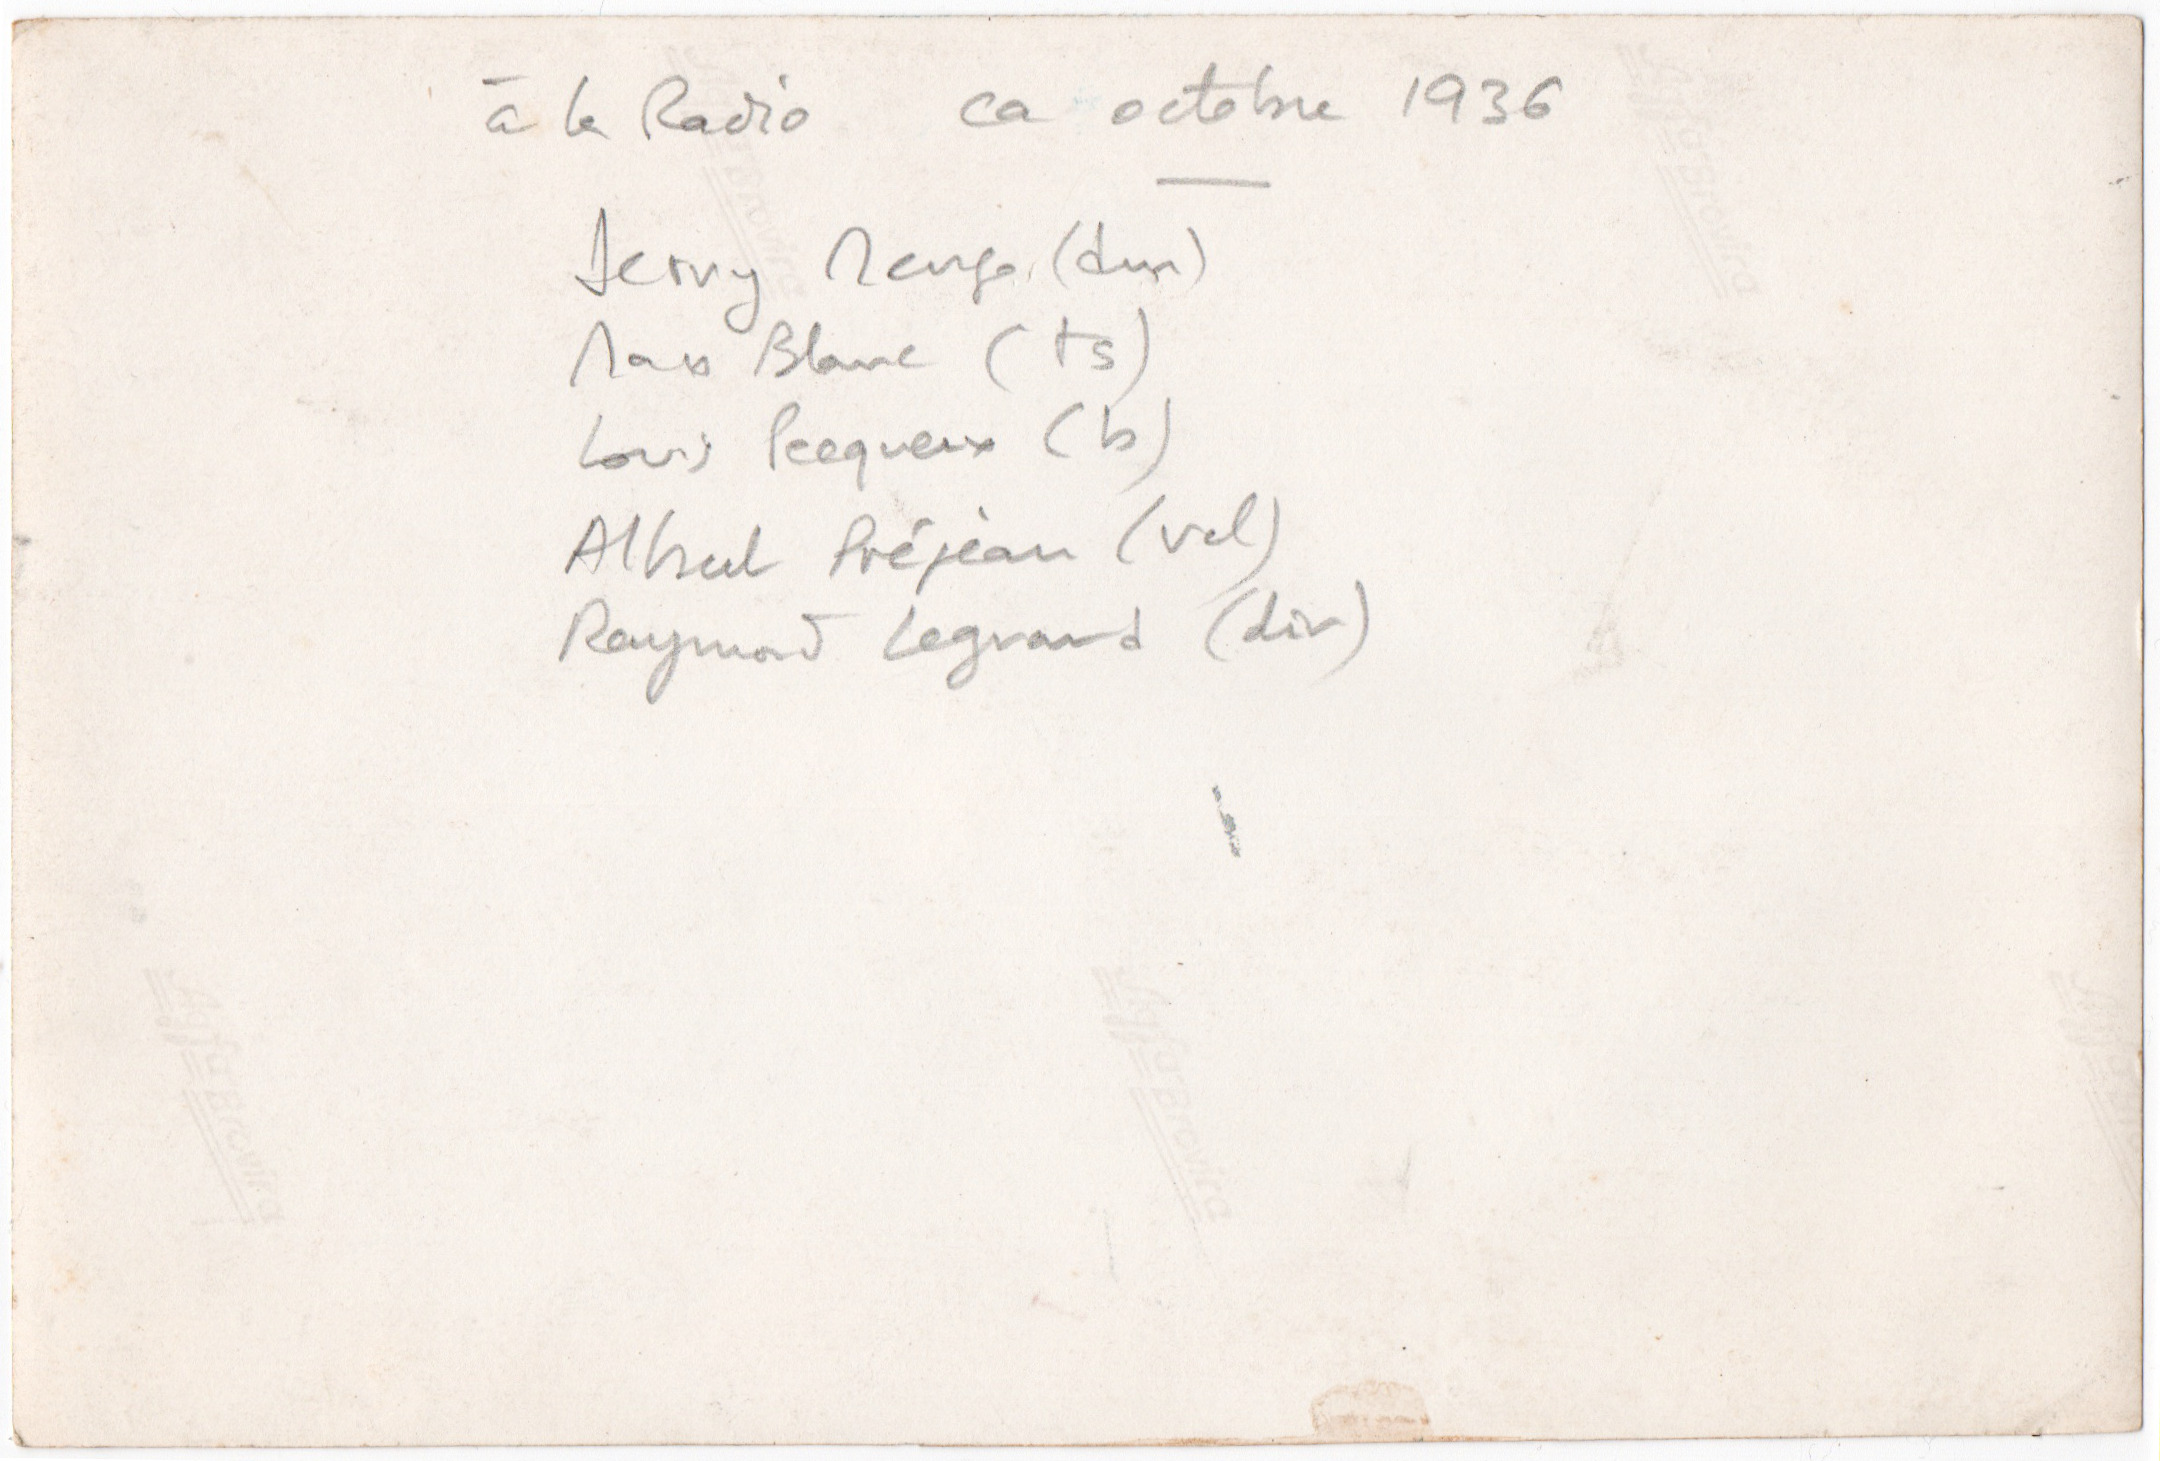 à la Radio ca octobre 1936
Jerry Mengo (dm)
Max Blanc (ts)
Louis Pecqueux (b)
Albert Préjean (vcl)
Raymond Legrand (dir)
Agfa Brovira
Agfa Brovira
Agfa Brovira
Agfa Brovira